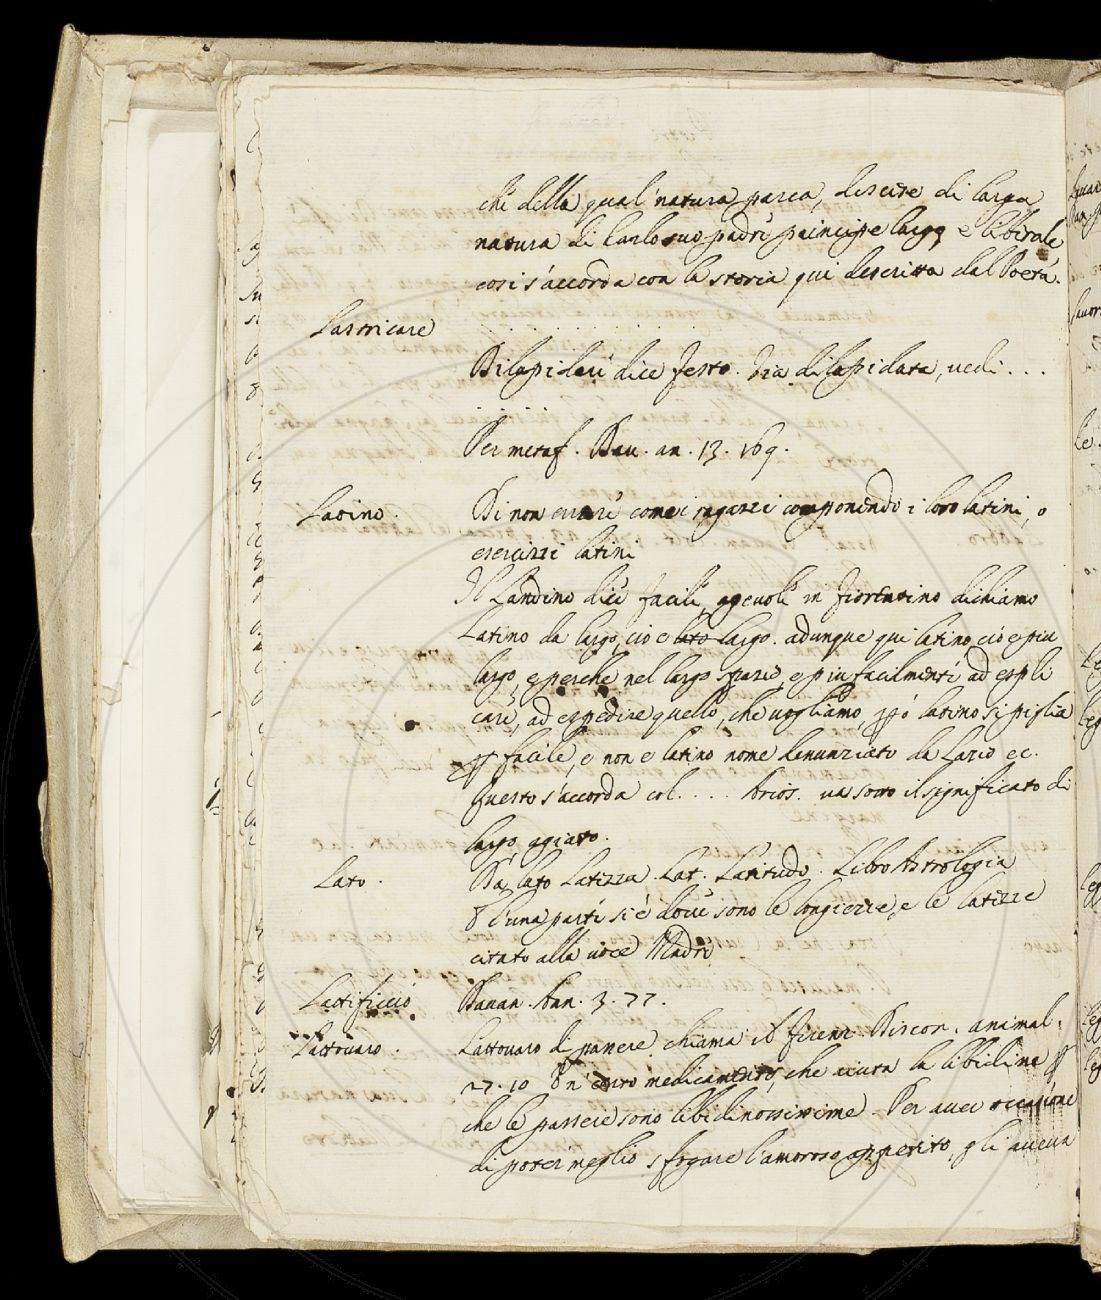 che della qual natura parca, descese di larga
natura di Carlo suo padre principe largo e liberale
cosi s'accorda con la storia qui descritta dal Poeta.
Lastricare . . . . . . . .
Dilapidare dice Festo. Via dilapidata, vedi . . .
. . . . .
Per metaf. Dav. an. 13. 169.
Latino. Di non errare come i ragazzi componendo i loro latini, o
latini
Il Landino dice facile, agevole in fiorentino dichiamo
Latino da largo, cio e lato largo. adunque qui latino cio e piu
largo, e perche nel largo spazio, e piu facilmente ad espli
care, ad espedire quello, che vogliamo, latino si piglia
facile, e non e latino nome denunziato da Lazio ec.
Questo s'accorda col . . . Arios. va sotto il significato di
largo agiato.
Lato. Da lato Latezza. Lat. Latitudo. Libro Astrologia
l'una parte si è dove sono le longiezze, e le latezze
citato alla voce Madre
Lattificcio Davan. An. 3. 77.
Lattovaro. Lattovaro di passere chiama il firenz. Discor. animal:
27. 10 certo medicamento, che aiuta la libidine
che le passere sono libidinosissime. Per aver occasione
di poter meglio sfogare l'amoroso appetito, gli aveva